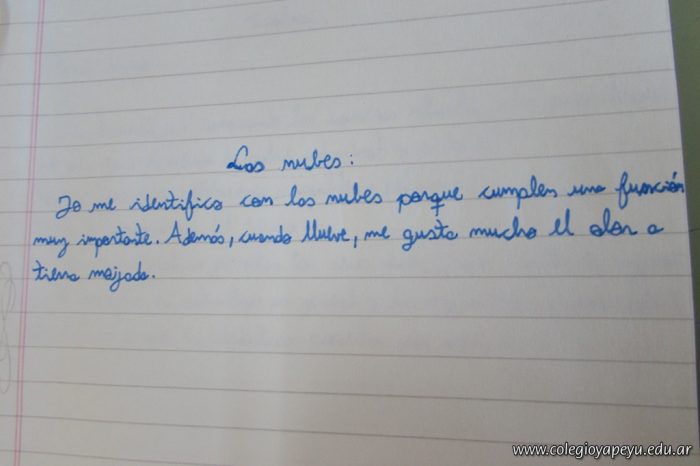 Las nubes:
Yo me identifico con las nubes porque cumplen una función
muy importante. Además, cuando llueve, me gusta mucho el olor a
tierra mojada.
www.colegioyapeyu.edu.ar